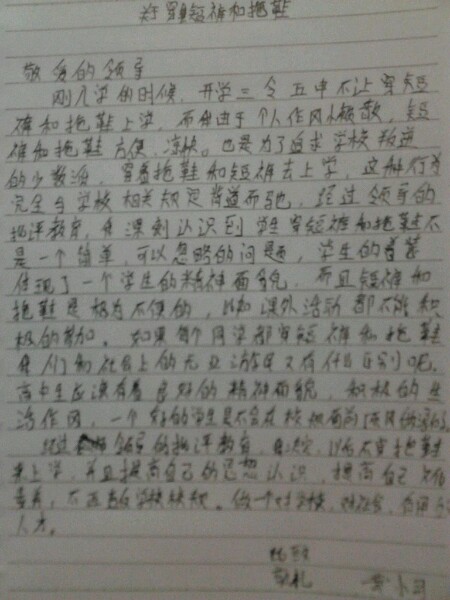 穿短裤和拖鞋
敬爱的领导
刚入学的时候，开学三令五申不让穿短
裤和拖鞋上学，而我由于个人作风懒散，短
裤和拖鞋方便，凉快。也是为了追求学校叛逆
的少数派，穿着拖鞋和短裤去上学，这种行为
完全与学校相关规定背道而驰，经过领导的
批评教育，我深刻认识到学生穿短裤和拖鞋不
是一个简单，可以忽略的问题，学生的着装
体现了一个学生的精神面貌，而且短裤和
拖鞋是极为不便的，比如课外活动都不能积
极的参加。如果每个同学都穿短裤和拖鞋
我们和社会上的无业游民又有什么区别呢。
高中生应该有着良好的精神面貌，积极的生
活作风，一个好的学生是不会在校规面前
经过领导的批评教育，我决定，以后不穿拖鞋
来上学，并且提高自己的思想认识，提高自己文化
素养，不违反学校校规。做一个对学校，对社会，有用的
人才。
此致
敬礼